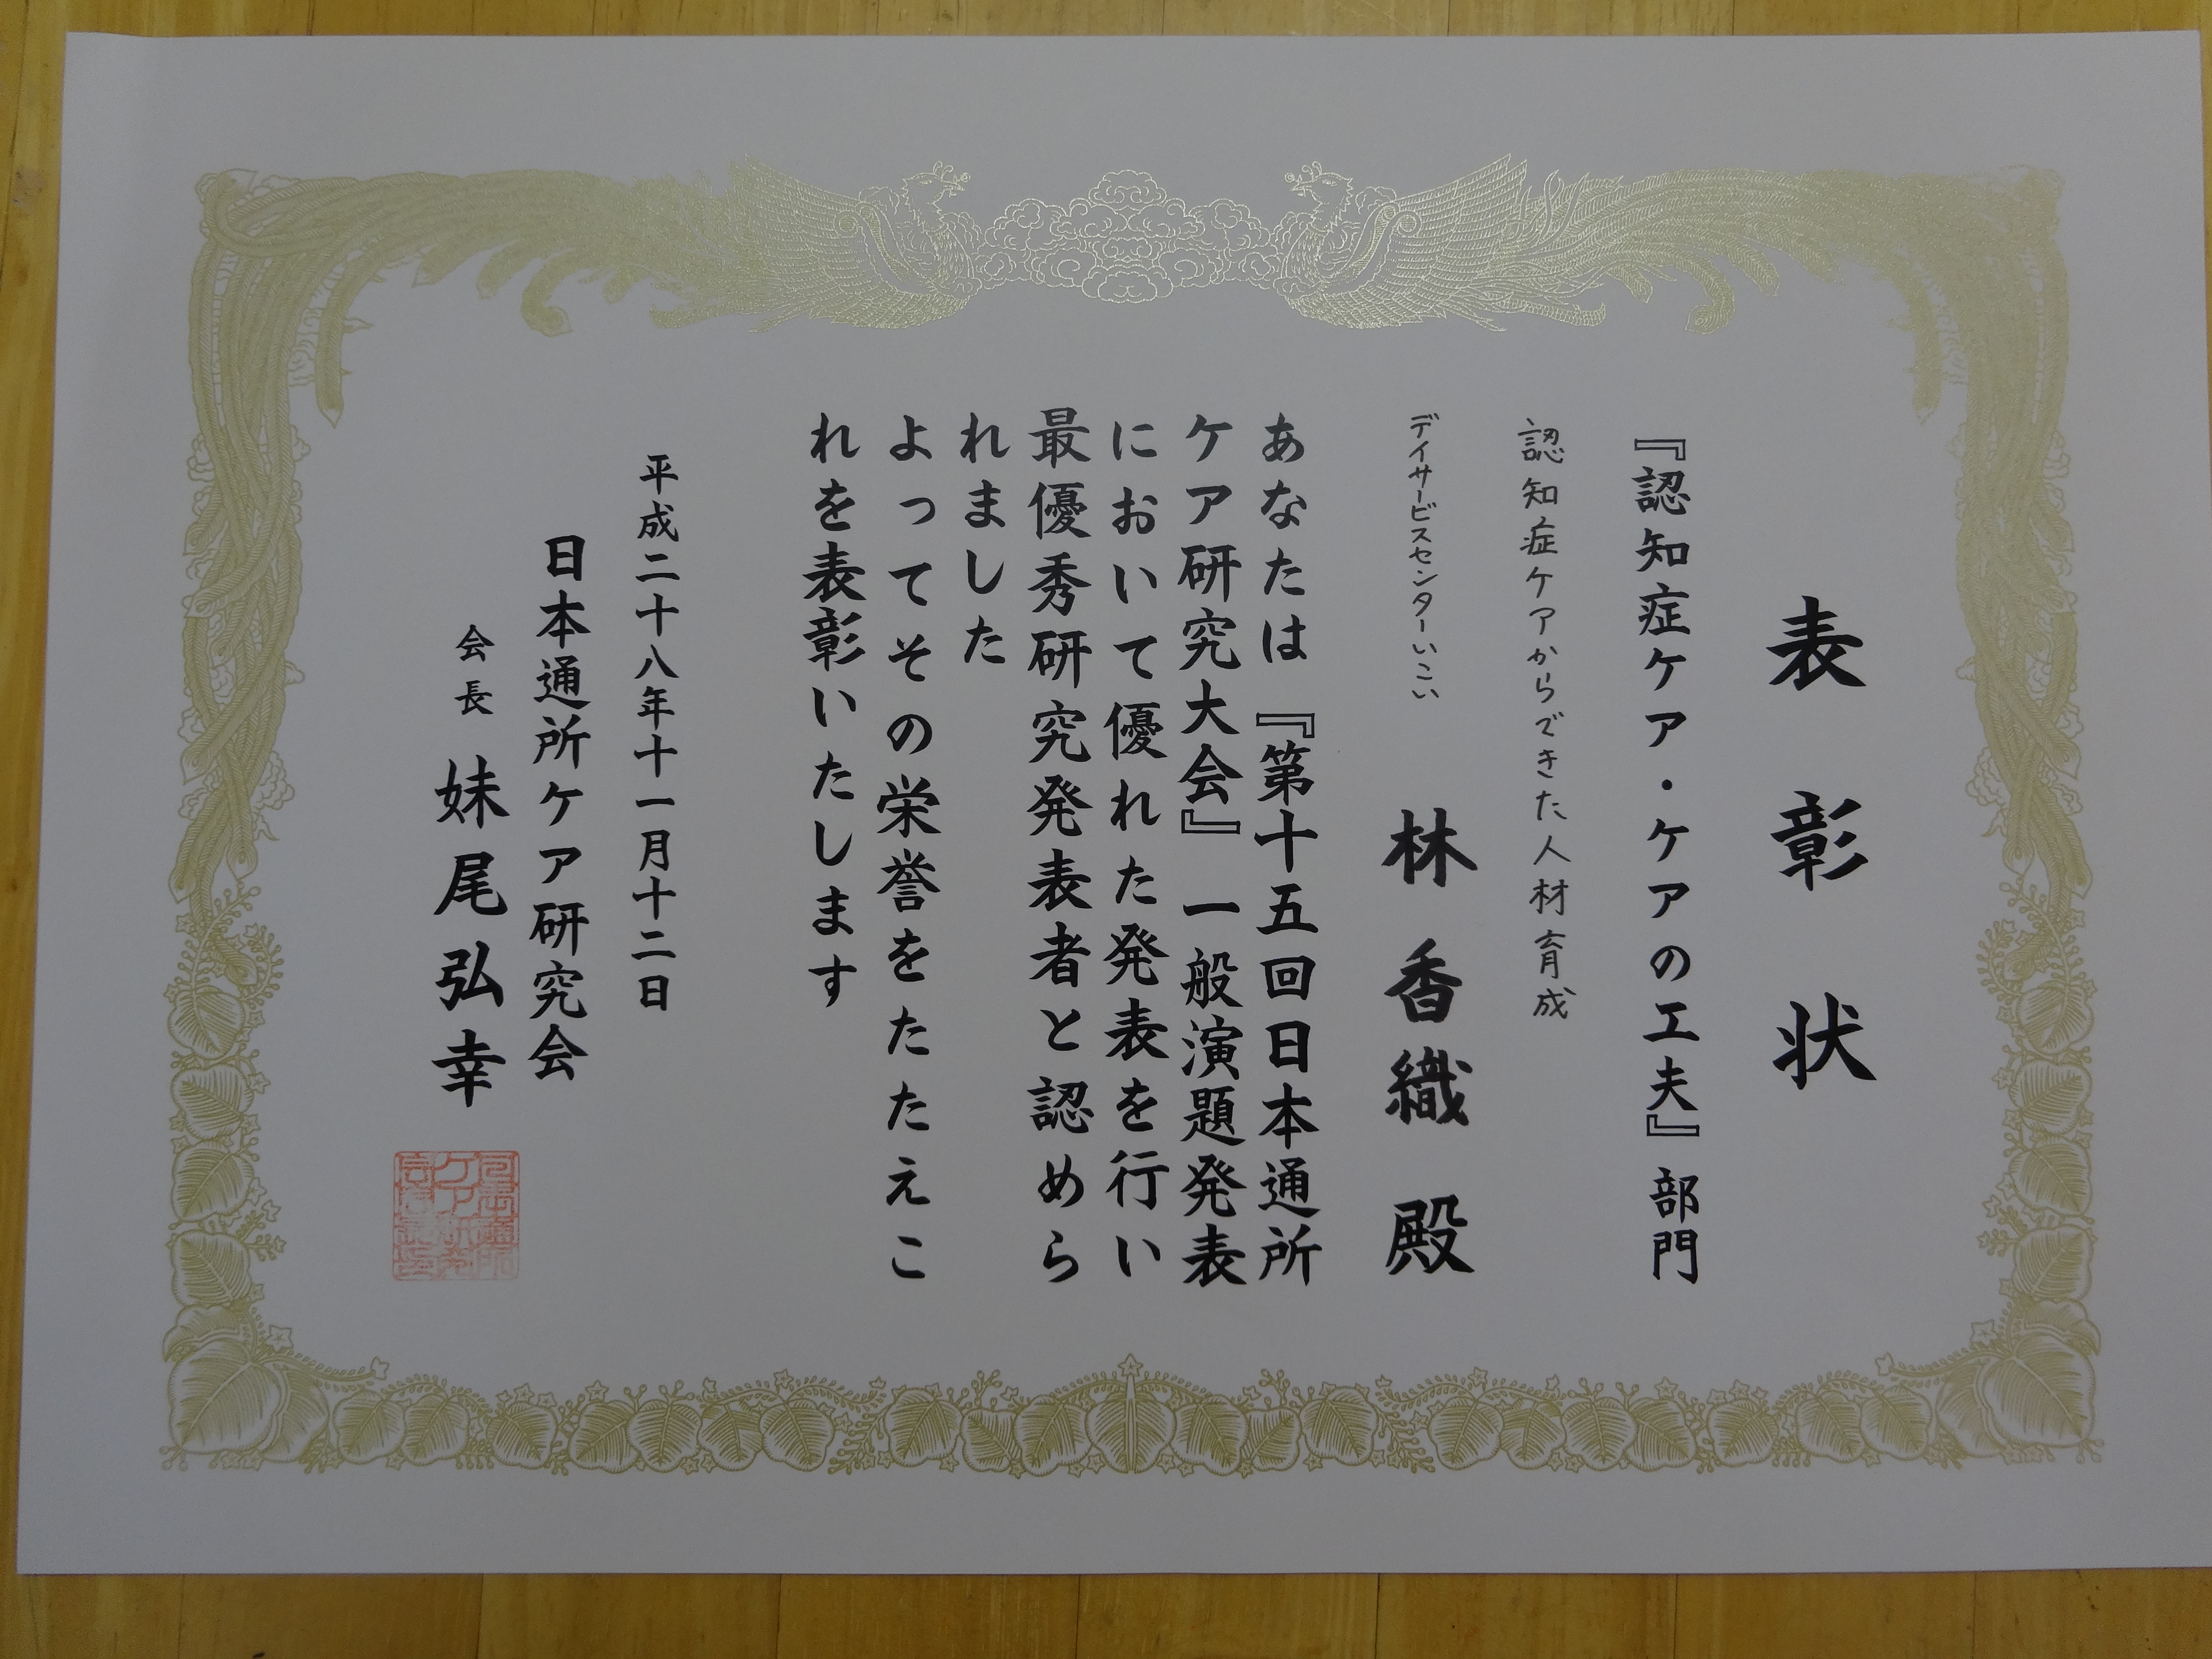 表彰状
『認知症ケア・ケアの工夫』部門
認知症ケアからできた人材育成
デイサービスセンターいこい
林 香織 殿
あなたは『第十五回日本通所
ケア研究大会』一般演題発表
において優れた発表を行い
最優秀研究発表者と認めら
れました
よってその栄誉をたたえこ
れを表彰いたします
平成二十八年十一月十二日
日本通所ケア研究会
会長 妹尾弘幸